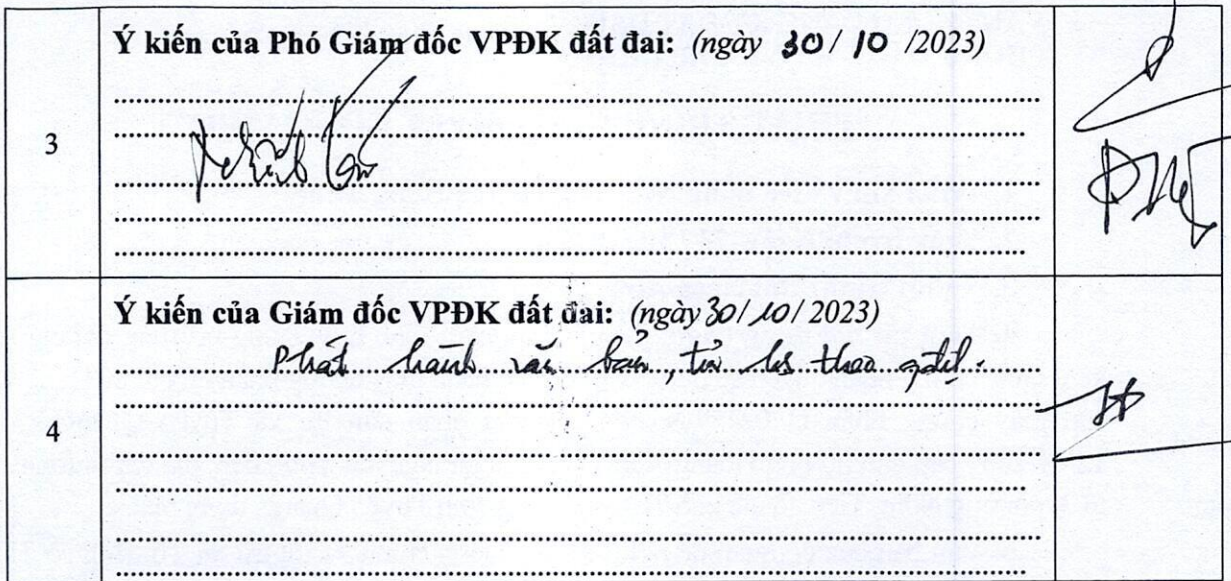 3
Ý kiến của Phó Giám đốc VPĐK đất đai: (ngày 30/ 10 /2023)
4
Ý kiến của Giám đốc VPĐK đất đai: (ngày 30/10/2023)
Phát hành văn bản, theo